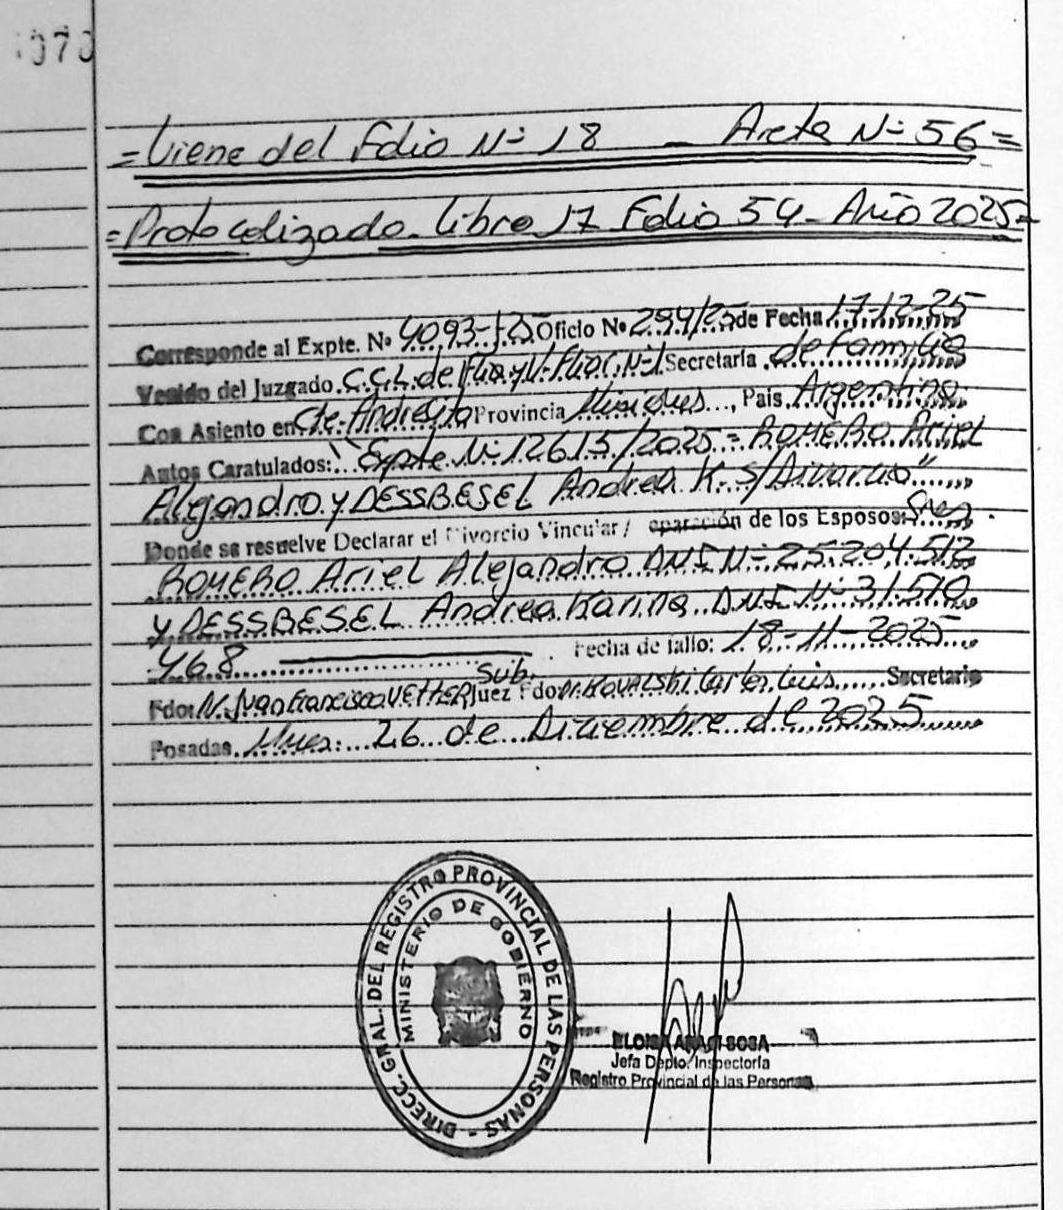 070
=Viene del Folio Nº 18 _ Acta Nº 56=
=Protocolizado Libro 17 Folio 54 - Año 2025=
Corresponde al Expte. Nº 4093-J-25 Oficio Nº 294/25 de Fecha 17-12-25
Venido del Juzgado C.C.L. de Flia y V. Secretaría de Familia
Con Asiento en Cte. Andresito Provincia Misiones, País Argentina
Autos Caratulados: "Expte Nº 12615/2025 - ROMERO Ariel
Alejandro y DESSBESEL Andrea K. S/Divorcio"
Donde se resuelve Declarar el Divorcio Vincular/ eparación de los Esposos: Sres
ROMERO Ariel Alejandro DNI Nº 25.204.512
y DESSBESEL Andrea Karina D.N.I. Nº 31.570
468 Fecha de fallo: 18-11-2025
Sub.
Fdo: Juan Francisco VETTER Juez Fdo Dr. Kovalski Carlos Luis Secretario
Posadas, Mnes: 26 de Diciembre de 2025
DIRECC. GRAL. DEL REGISTRO PROVINCIAL DE LAS PERSONAS -
MINISTERIO DE GOBIERNO
SOSA
Jefa Depto. Inspectoría
Registro Provincial de las Personas